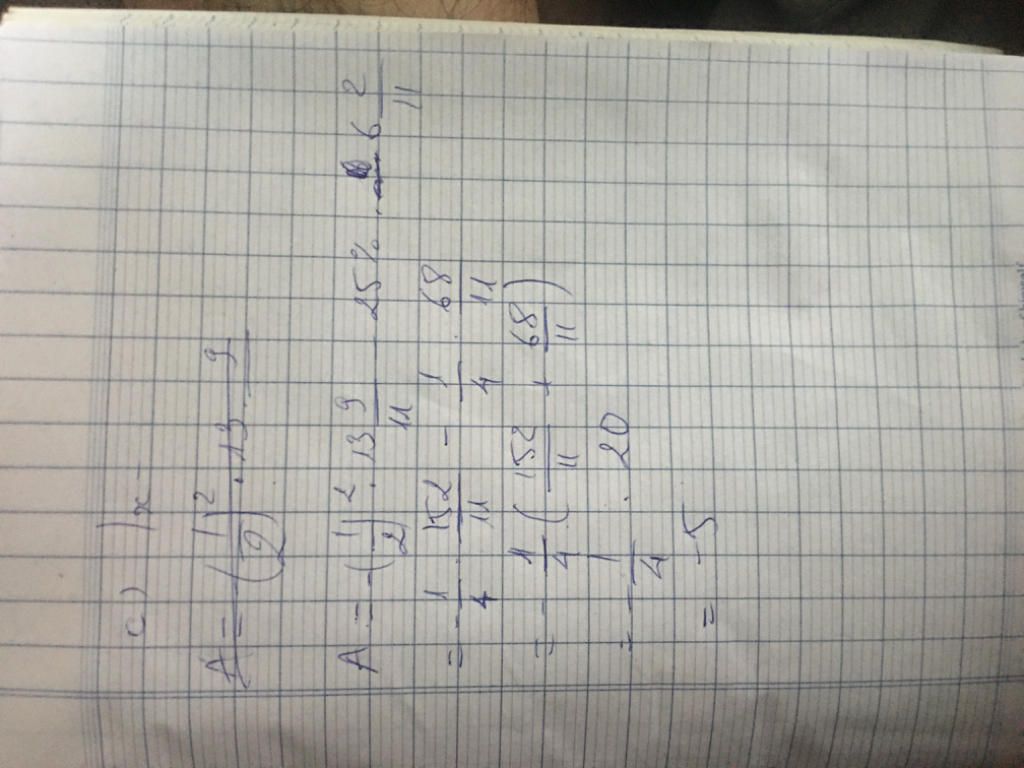 c) |x -
A = -(1/2)² . 13 9/
A = -(1/2)² . 13 9/11 - 25% . 6 2/11
= - 1/4 . 152/11 - 1/4 . 68/11
= - 1/4 ( 152/11 + 68/11 )
= - 1/4 . 20
= -5